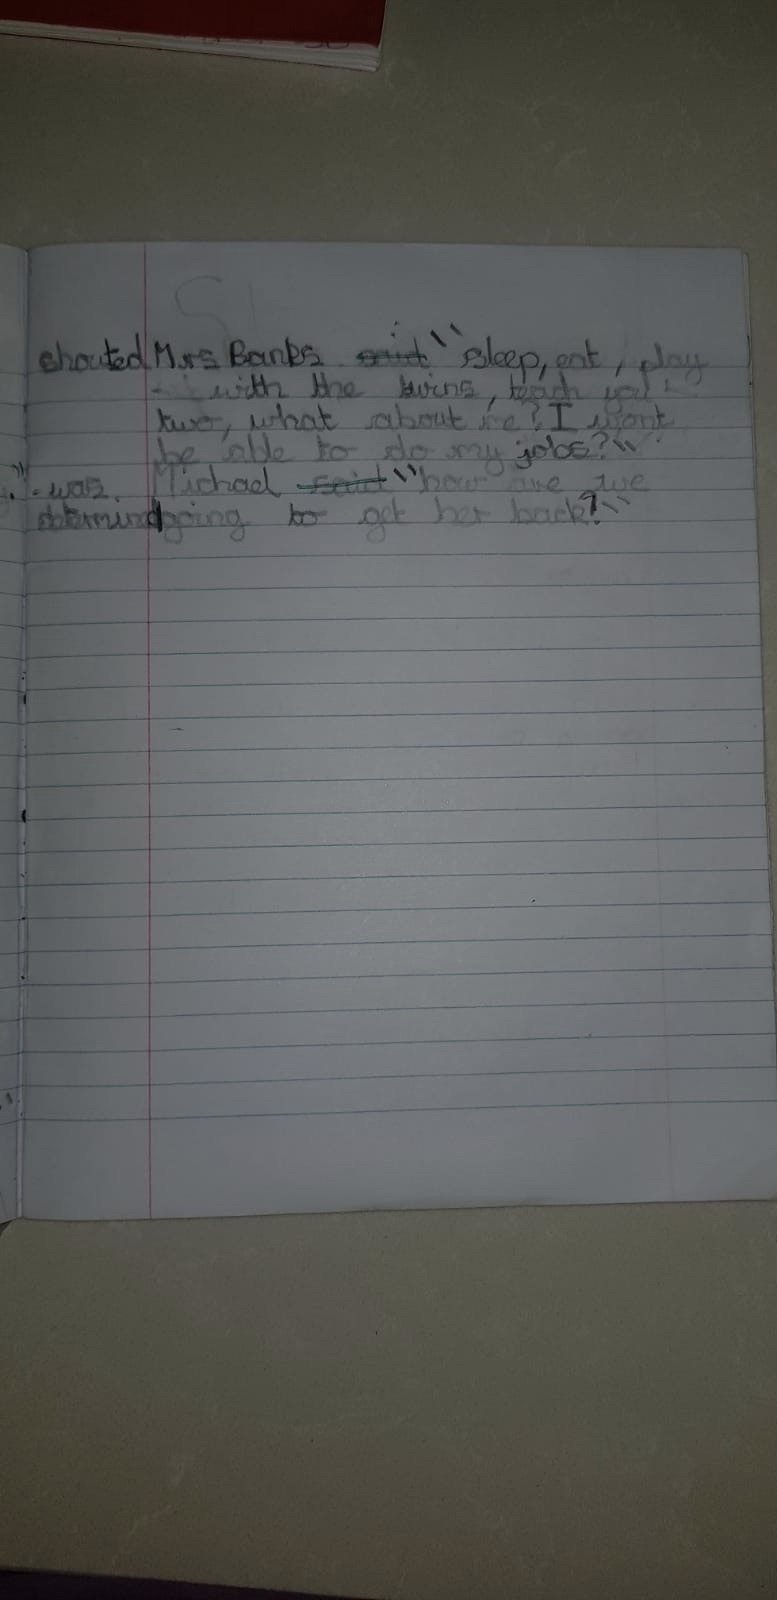 shouted Mrs Banks said "sleep, eat, play
with the twins, teach you
two, what about me? I wont
be able to do my jobs?"
- was. Michael said "how are we
determind going to get her back?"